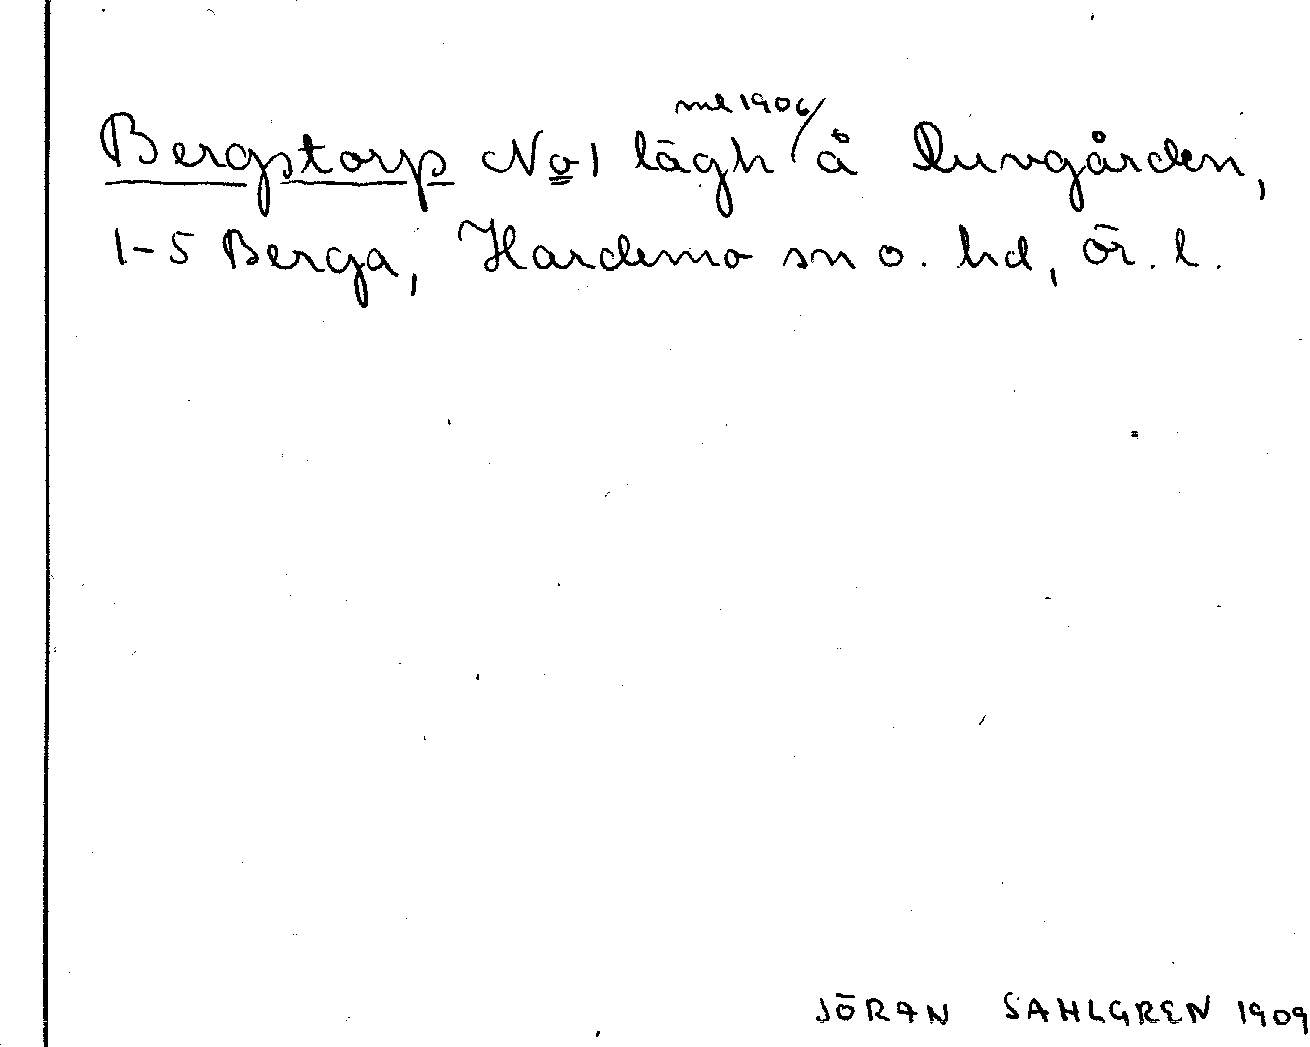 Bergstorp No1 lägh ml 1906/ å Duvgården,
1-5 Berga, Hardemo sn o. hd, ör. l.
JÖRAN SAHLGREN 1909